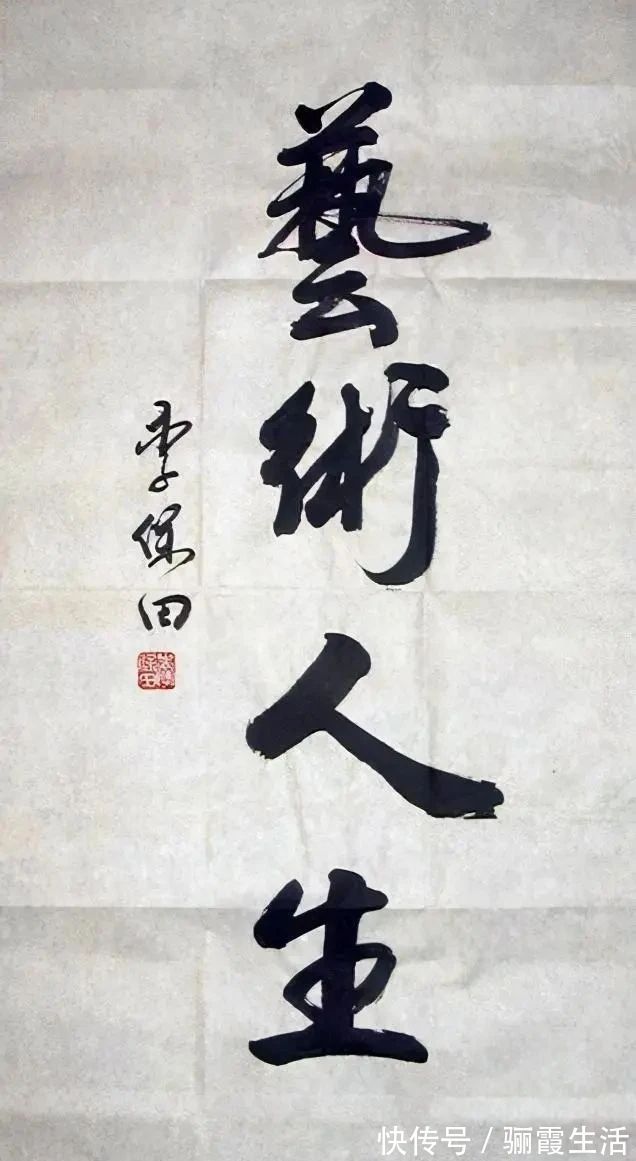 藝術人生
李保田
快传号 / 骊霞生活